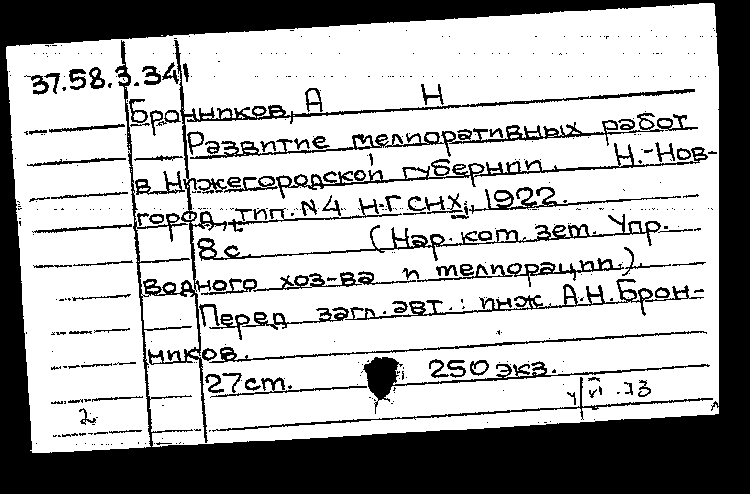 37.58.3.341
Бронников, А Н
Развитие мелиоративных работ
в Нижегородской губернии. Н.-Нов-
город, тип. N4 НГСНХ, 1922.
8 с. (Нар. ком. зем. Упр.
водного хоз-ва и мелиорации.)
Перед загл. авт.: инж. А.Н.Брон-
ников.
27 см. 250 экз.
VI-73
2.